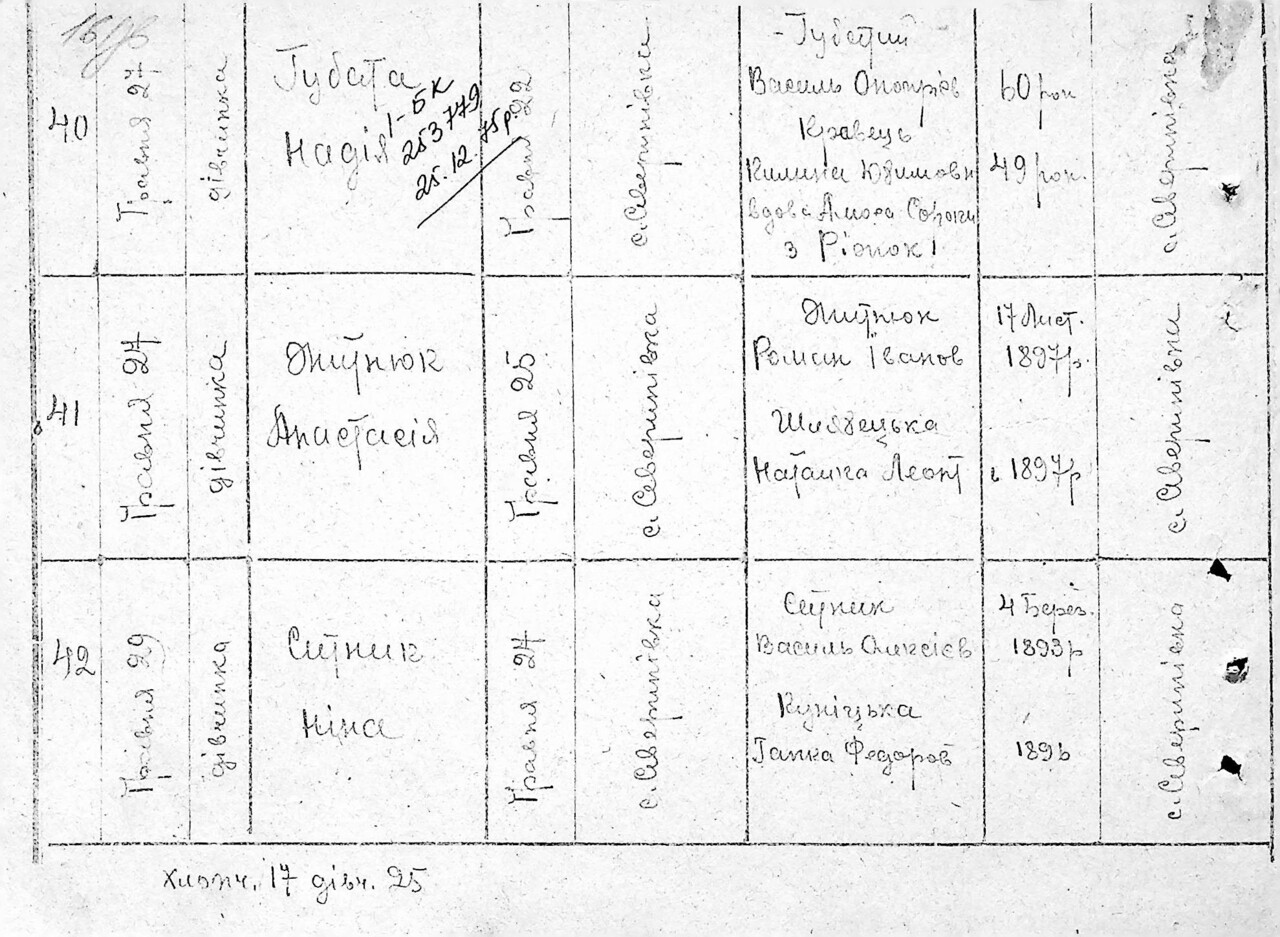 40
Травня 27
дівчинка
Губата
Надія
І-БК
253779
25.12.75р.
Травня 22
с. Северинівка
Губатий
Василь Онопрієв
Кравець
Килина Юхимовн
вдова
з
60 рок
49 рок.
с. Северинівка
41
Травня 24
дівчинка
Житнюк
Анастасія
Травня 25
с. Северинівка
Житнюк
Роман Іванов
Шляхецька
Наталка Леонт
17 Лист.
1897р.
1897р
с. Северинівка
42
Травня 29
дівчинка
Ситник
Ніна
Травня 24
с. Северинівка
Ситник
Василь Олексієв
Куніцька
Ганка Федоров
4 Берез.
1893р
1896
с. Северинівка
Хлопч. 17 дівч. 25